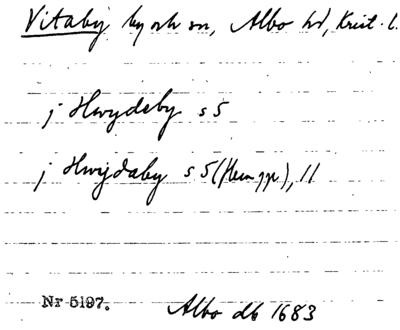 Vitaby by och sn, Albo hd, Krist. l.
j Hwydeby s 5
j Hwijdaby s 5 (flera ggr), 11
Nr 5197. Albo db 1683